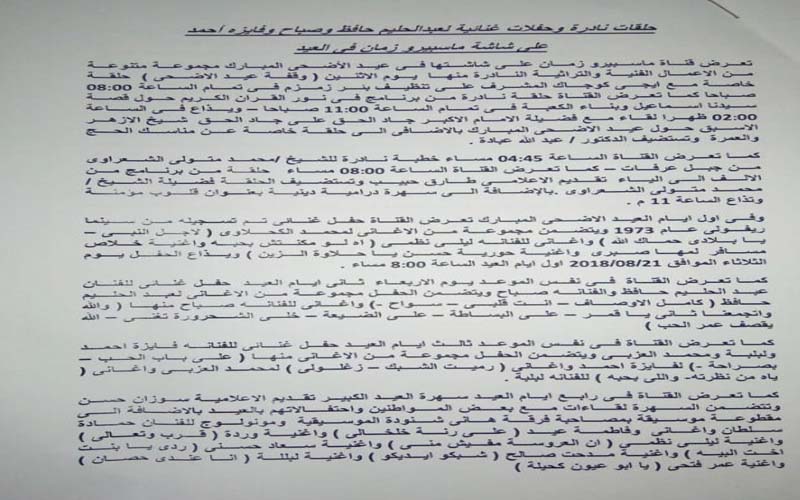 حلقات نادرة وحفلات غنائية لعبدالحليم حافظ وصباح وفايزه احمد
على شاشة ماسبيرو زمان فى العيد
تعرض قناة ماسبيرو زمان على شاشتها فى عيد الأضحى المبارك مجموعة متنوعة
من الاعمال الفنية والتراثية النادرة منها يوم الاثنين ( وقفة عيد الاضحى ) حلقة
خاصة مع ايجى كوجاك المشرف على تنظيف بئر زمزم فى تمام الساعة 08:00
صباحا كما تعرض القناة حلقة نادرة من برنامج فى نور القران الكريم حول قصة
سيدنا اسماعيل وبناء الكعبة فى تمام الساعة 11:00 صباحا ويذاع فى الساعة
02:00 ظهرا لقاء مع فضيلة الامام الاكبر جاد الحق على جاد الحق شيخ الازهر
الاسبق حول عيد الاضحى المبارك بالاضافى الى حلقة خاصة عن مناسك الحج
والعمرة وتستضيف الدكتور / عبد الله عبادة .
كما تعرض القناة الساعة 04:45 مساء خطبة نادرة للشيخ /محمد متولى الشعراوى
من جبل عرفات – كما تعرض القناة الساعة 08:00 مساء حلقة من برنامج من
الالف الى الياء تقديم الاعلامى طارق حبيب وتستضيف الحلقة فضيلة الشيخ /
محمد متولى الشعراوى .بالإضافة الى سهرة درامية دينية بعنوان قلوب مؤمنة
وتذاع الساعة 11 م .
وفى اول ايام العيد الاضحى المبارك تعرض القناة حفل غنائى تم تسجيله من سينما
ريفولى عام 1973 ويتضمن مجموعة من الاغانى لمحمد الكحلاوى ( لاجل النبى –
يا بلادى حماك الله ) واغانى للفنانه ليلى نظمى ( اه لو مكنتش بحبه واغنية خلاص
مسافر لمها صبرى واغنية حورية حسن يا حلاوة الزين ) ويذاع الحفل يوم
الثلاثاء الموافق 2018/08/21 اول ايام العيد الساعة 8:00 مساء .
كما تعرض القناة فى نفس الموعد يوم الاربعاء ثانى ايام العيد حفل غنائى للفنان
عبد الحليم حافظ والفنانه صباح ويتضمن الحفل مجموعة من الاغانى لعبد الحليم
حافظ ( كامل الاوصاف – انت قلبى – سواح -) واغانى للفنانه صباح منها ( والله
واتجمعنا ثانى يا قمر – على البساطة – على الضيعة – خلى الشحرورة تغنى – الله
يقصف عمر الحب )
كما تعرض القناة فى نفس الموعد ثالث ايام العيد حفل غنائى للفنانه فايزة احمد
ولبلبة ومحمد العزبى ويتضمن الحفل مجموعة من الاغانى منها ( على باب الحب –
بصراحة -) لفايزة احمد واغاني ( رميت الشبك – زغلولى ) لمحمد العزبى واغانى (
ياه من نظرته- واللى بحبه ) للفنانه لبلبة .
كما تعرض القناة فى رابع ايام العيد سهرة العيد الكبير تقديم الاعلامية سوزان حسن
وتتضمن السهرة لقاءات مع بعض المواطنين واحتفالاتهم بالعيد بالاضافة الى
مقطوعة موسيقة بمصاحبة فرقة هانى شنودة الموسيقية ومونولوج للفنان حمادة
سلطان واغانى وفاطمة عيد ( على رنة خلخالى ) واغنية وردة ( قرب وتعالى )
واغنية ليلى نظمي ( ان العروسة مفيش منى ) واغنية سعاد حسنى ( ردى يا بنت
اخت البيه ) واغنية مدحت صالح ( شيكو ايديكو ) واغنية لبللة ( انا عندى حصان )
واغنية عمر فتحى ( يا ابو عيون كحيلة )